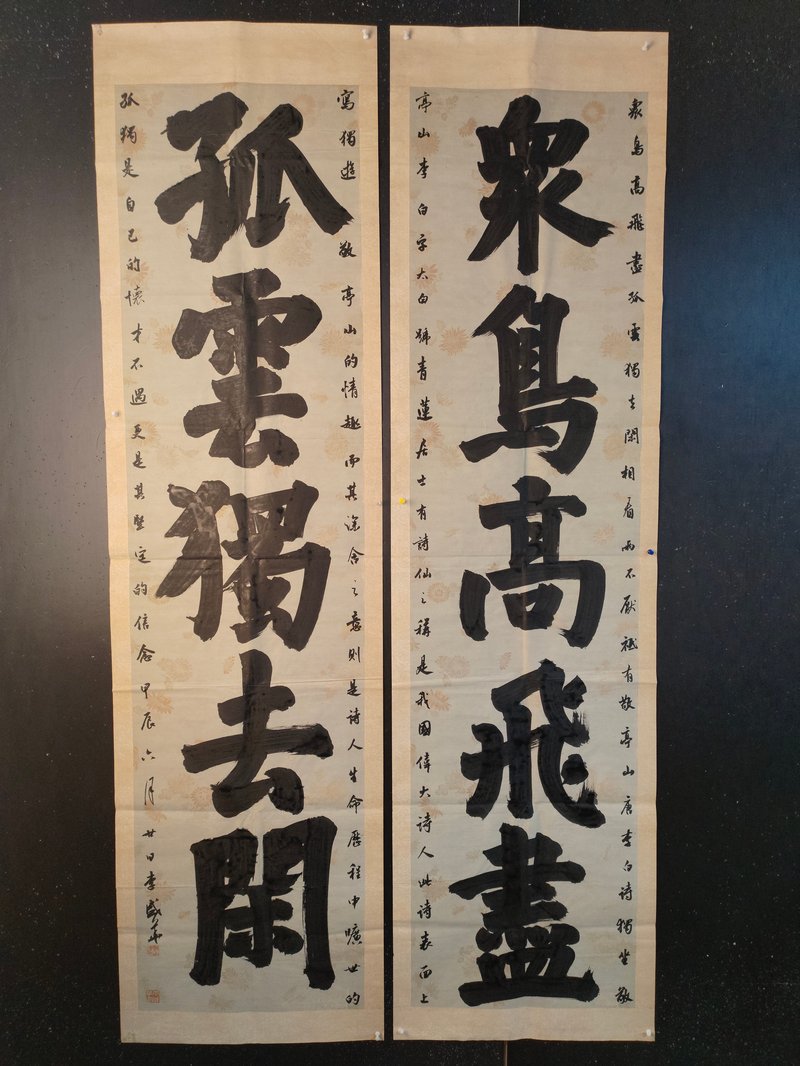 眾鳥高飛盡
孤雲獨去閑
眾鳥高飛盡孤雲獨去閑相看兩不厭祗有敬亭山唐李白詩獨坐敬
亭山李白字太白號青蓮居士有詩仙之稱是我國偉大詩人此詩表面上
寫獨遊敬亭山的情趣而其深含之意則是詩人生命歷程中曠世的
孤獨是自己的懷才不遇更是其堅定的信念甲辰六月廿日李盛華